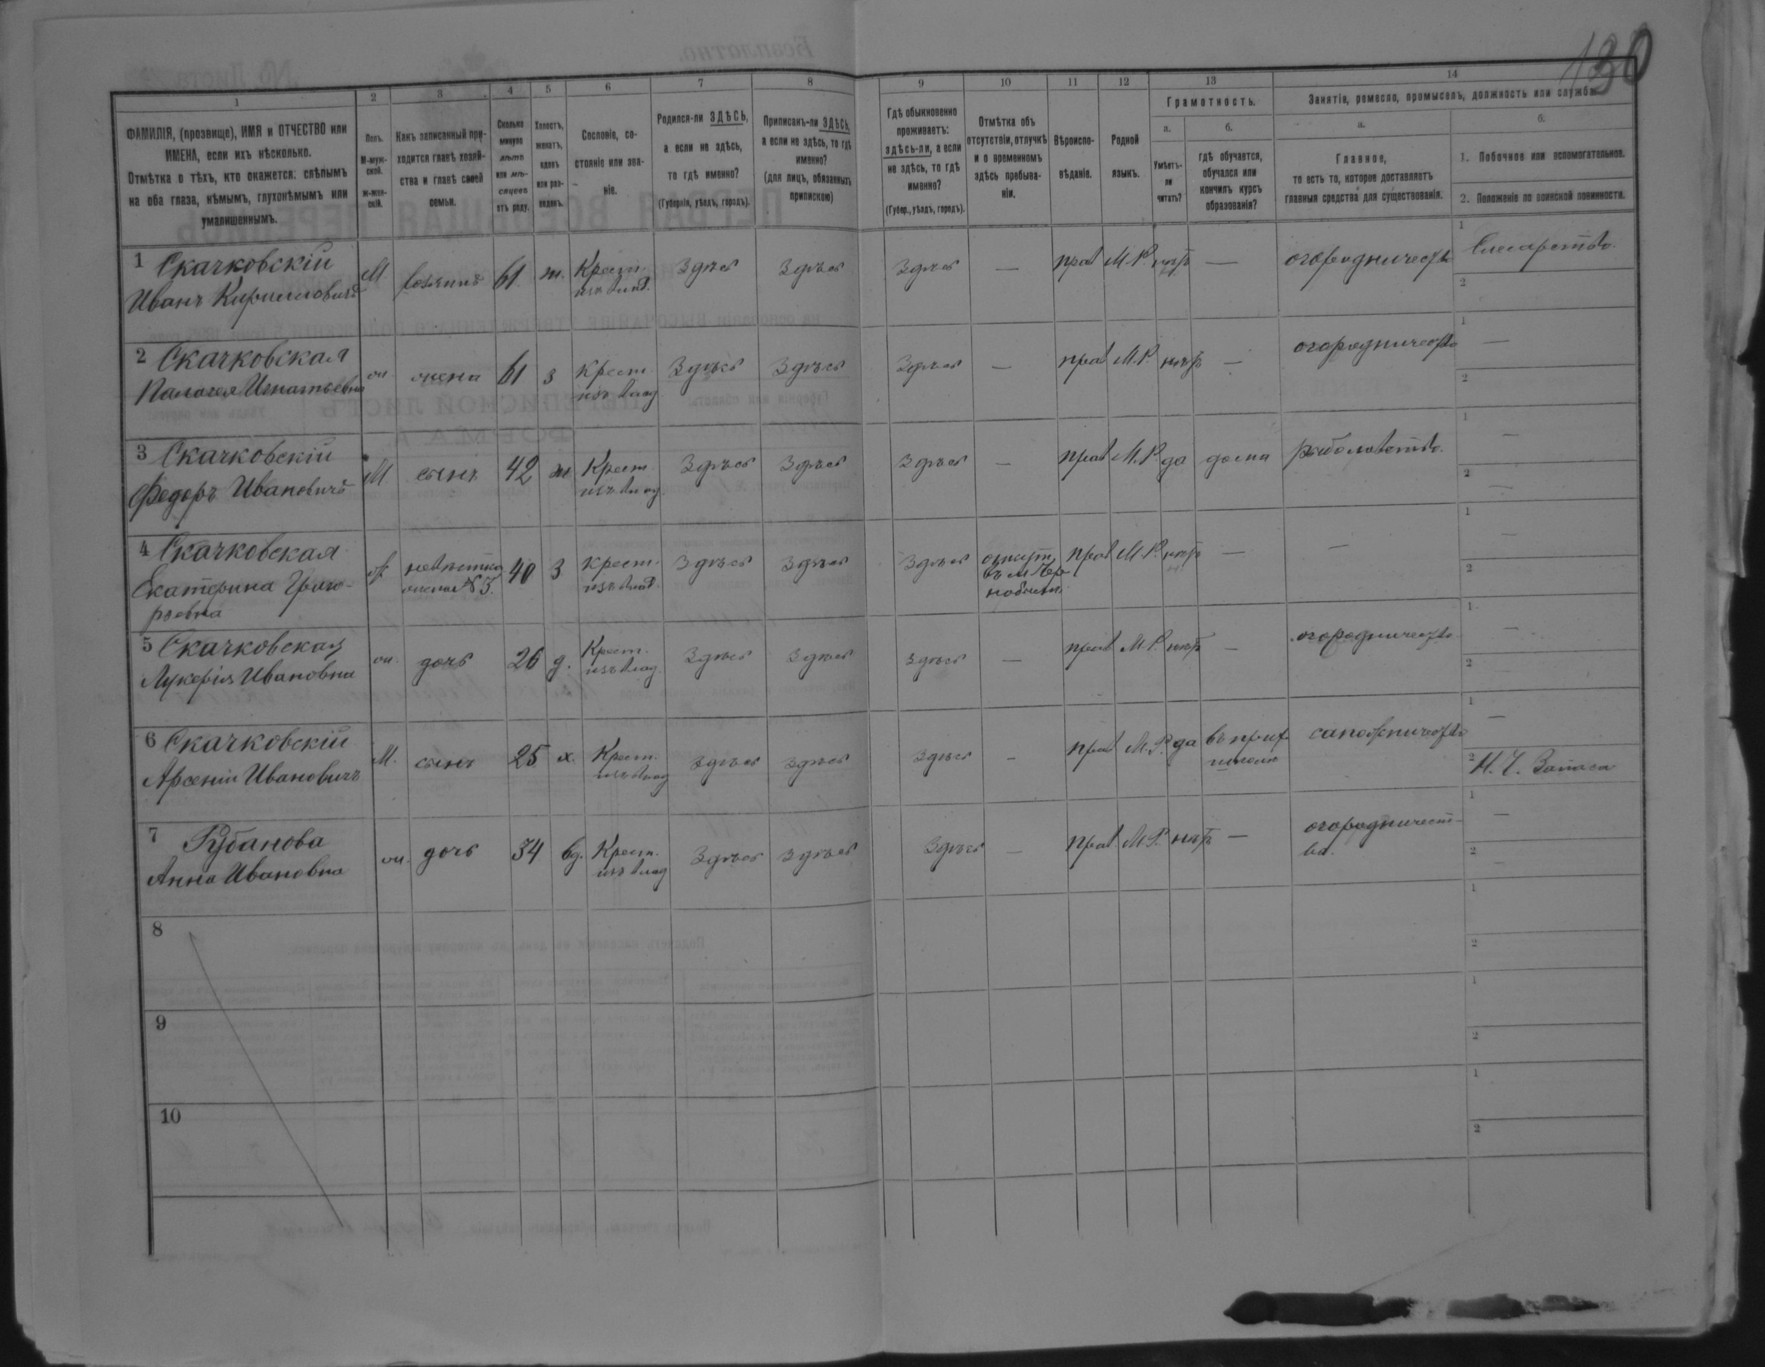 130
1 2 3 4 5 6 7 8 9 10 11 12 13 14
ФАМИЛІЯ, (прозвище), ИМЯ и ОТЧЕСТВО или
ИМЕНА, если ихъ нѣсколько.
Отмѣтка о тѣхъ, кто окажется: слѣпымъ
на оба глаза, нѣмымъ, глухонѣмымъ или
умалишеннымъ.
Полъ.
М-муж-
ской.
ж-жен-
скій.
Какъ записанный при-
ходится главѣ хозяй-
ства и главѣ своей
семьи.
Сколько
минуло
лѣтъ
или мѣ-
сяцевъ
отъ роду.
Холостъ,
женатъ,
вдовъ
или раз-
веденъ.
Сословіе, со-
стояніе или зва-
ніе.
Родился-ли ЗДѢСЬ,
а если не здѣсь,
то гдѣ именно?
(Губернія, уѣздъ, городъ).
Приписанъ-ли ЗДѢСЬ,
а если не здѣсь, то гдѣ
именно?
(для лицъ, обязанныхъ
припискою)
Гдѣ обыкновенно
проживаетъ:
здѣсь-ли, а если
не здѣсь, то гдѣ
именно?
(Губер., уѣздъ, городъ).
Отмѣтка объ
отсутствіи, отлучкѣ
и о временномъ
здѣсь пребыва-
ніи.
Вѣроиспо-
вѣданіе.
Родной
языкъ.
Грамотность.
а. б.
Умѣетъ-
ли
читать?
гдѣ обучается,
обучался или
кончилъ курсъ
образованія?
Занятія, ремесло, промыселъ, должность или служба.
а. б.
Главное,
то есть то, которое доставляетъ
главныя средства для существованія.
1. Побочное или вспомогательное.
2. Положеніе по воинской повинности.
1 Скачковскій
Иванъ Кирилловичъ
М хозяинъ 61 ж. Крест.
изъ влад.
Здѣсь Здѣсь Здѣсь — прав М.Р. нѣтъ — огородничество
1 Слесарство
2
2 Скачковская
Палагея Игнатьевна
ж жена 61 з Крест
изъ влад
Здѣсь Здѣсь Здѣсь — прав М.Р. нѣтъ — огородничество
1 —
2
3 Скачковскій
Федоръ Ивановичъ
М сынъ 42 ж Крест
изъ влад.
Здѣсь Здѣсь Здѣсь — прав М.Р. да дома рыболовство.
1 —
2 —
4 Скачковская
Екатерина Григо-
рьевна
ж невѣстка
жена №3.
40 3 Крест.
изъ влад.
Здѣсь Здѣсь Здѣсь
прав М.Р. нѣтъ — —
1 —
2
5 Скачковская
Лукерія Ивановна
ж. дочь 26 д. Крест.
изъ влад.
Здѣсь Здѣсь здѣсь — прав М.Р. нѣтъ — огородничество
1 —
2
6 Скачковскій
Арсеній Ивановичъ
М. сынъ 25 х. Крест.
изъ влад
Здѣсь здѣсь здѣсь - прав М.Р. да въ приход
школѣ
сапожничество
1 —
2 Н. Ч. Запаса
7 Рубанова
Анна Ивановна
ж. дочь 34 вд. Крест.
изъ влад
Здѣсь здѣсь Здѣсь — прав М.Р. нѣтъ — огородничест-
во.
1 —
2 —
8
1
2
9
1
2
10
1
2